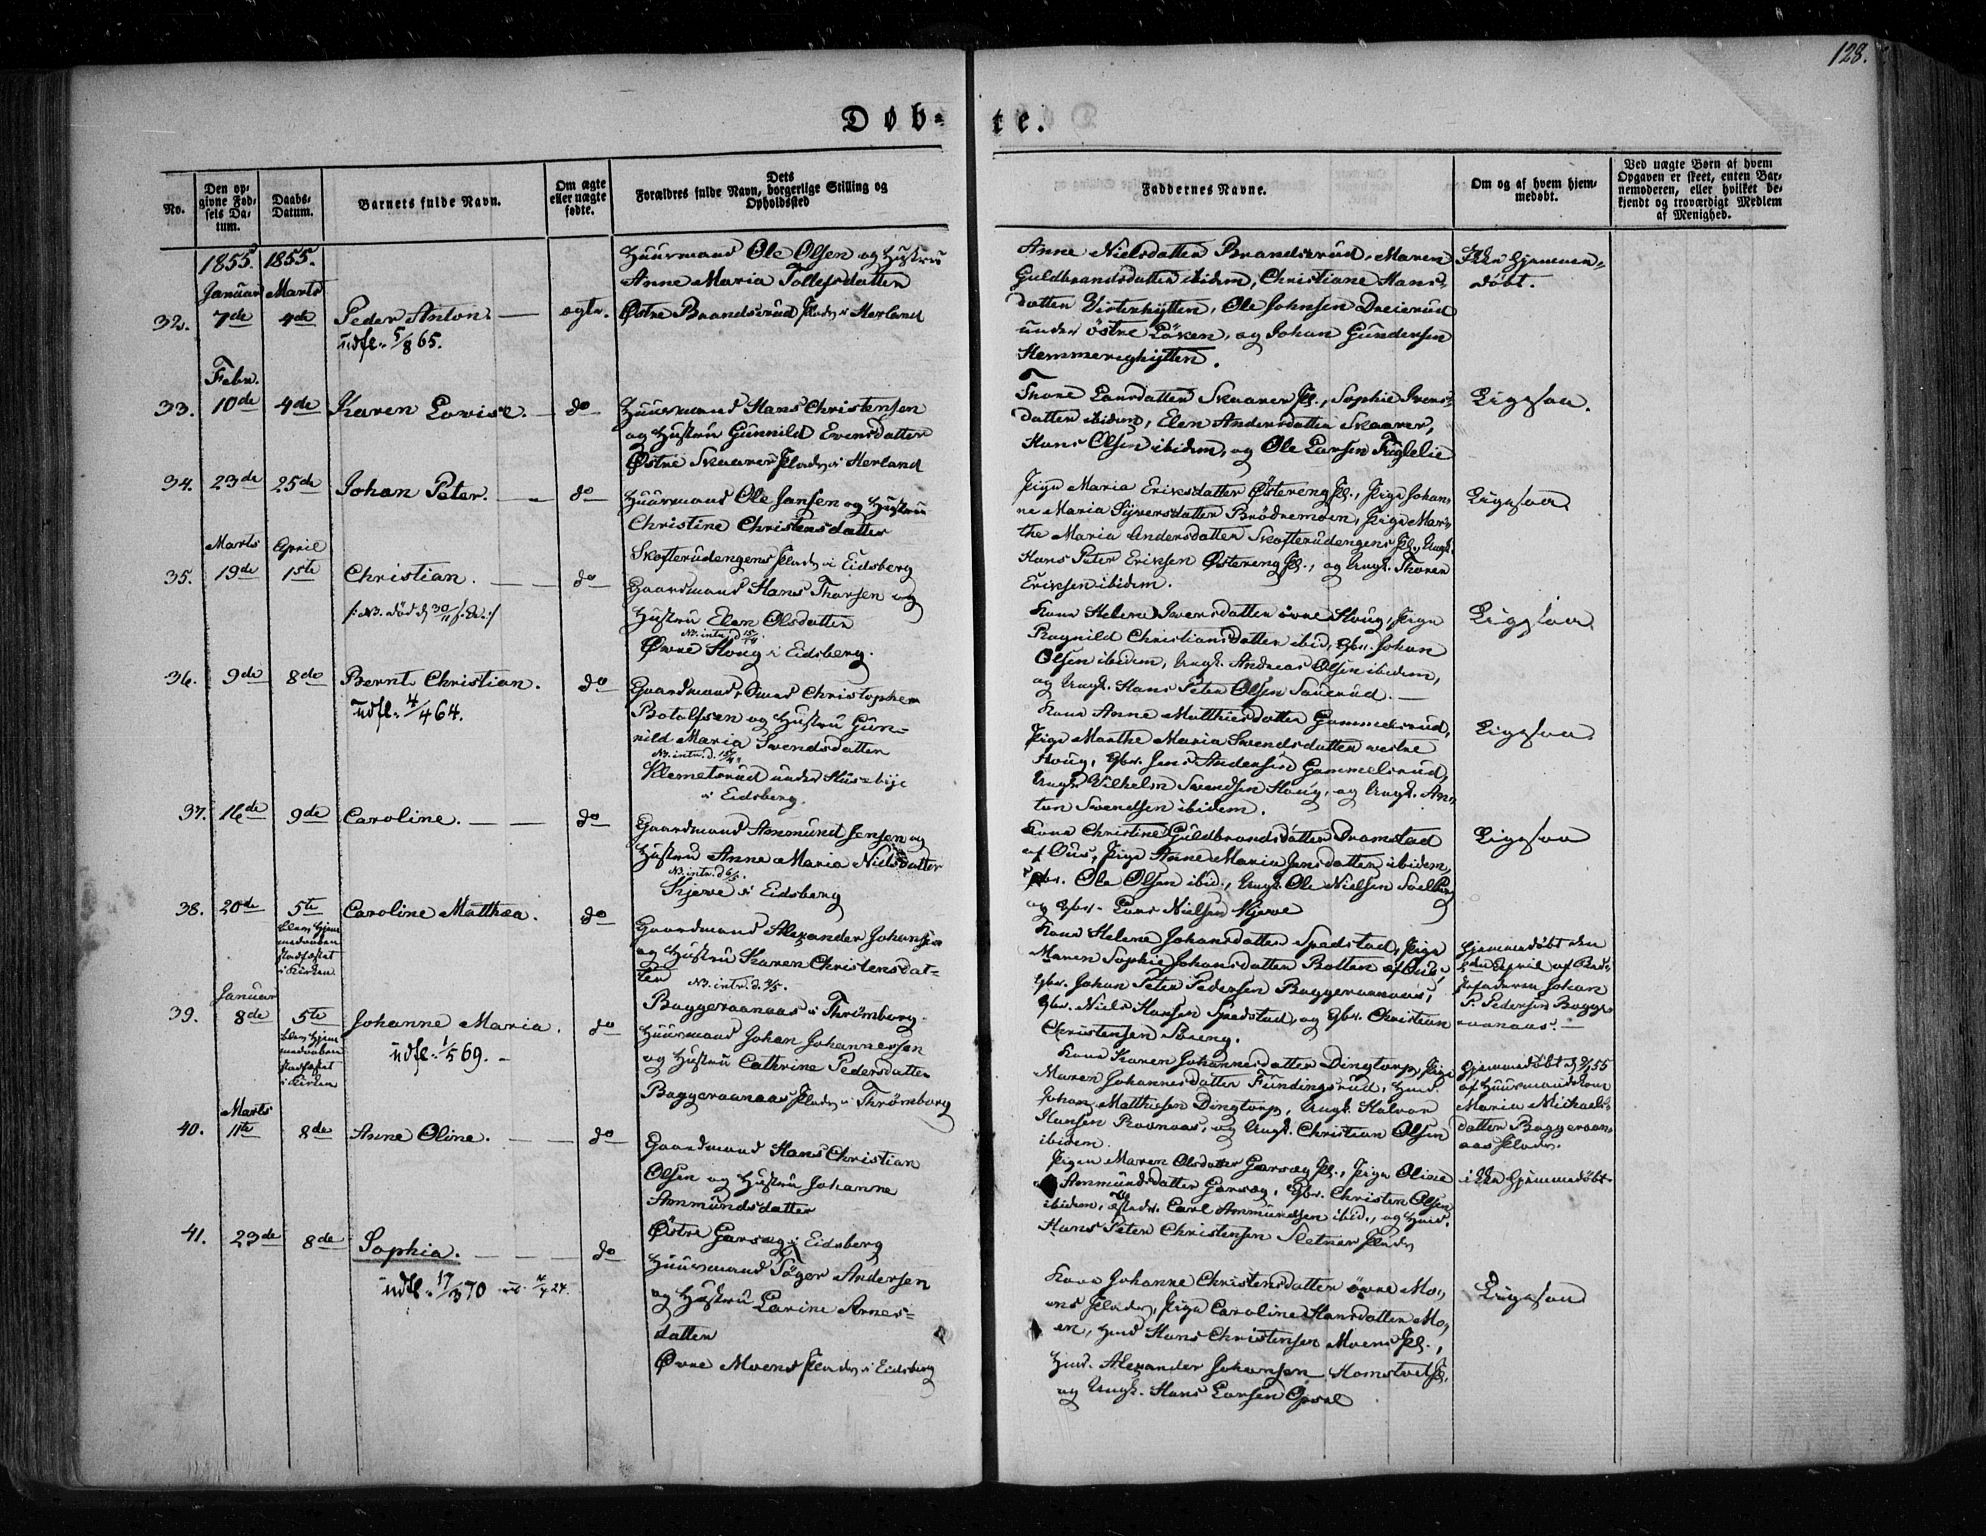 128.
Døb-
te.
No.
Den op-
givne Fød-
sels Da-
tum.
Daabs-
Datum.
Barnets fulde Navn.
Om ægte
eller uægte
fødte.
Dets
Forældres fulde Navn, borgerlige Stilling og
Opholdssted
Faddernes Navne.
Om og af hvem hjem-
medøbt.
Ved uægte Børn af hvem
Opgaven er skeet, enten Bar-
nemoderen, eller hvilket be-
kjendt og troværdigt Medlem
af Menighed.
1855. 1855.
Januar Marts
32. 7de 4de Peder Anton. ægte.
udfl. 5/8 65.
Huusmand Ole Olsen og Hustru
Anne Maria Tollefsdatter
Østre Brandsrud Plads i Herland
Anne Nielsdatter Brandsrud, Maren
Guldbrandsdatter ibidem, Christiane Hans-
datter Vesterhytten, Ole Johnsen Dreierud
under østre Løken, og Johan Gundersen
Hemmerighytten.
Ikke hjemme-
døbt.
Febr.
33. 10de 4de Karen Lovise. do
Huusmand Hans Christensen
og Hustru Gunnild Evensdatter
Østre Skaarer Plads i Herland
Thore Larsdatter Skaarer Pl., Sophie Ivers-
datter ibidem, Elen Andersdatter Skaarer,
Hans Olsen ibidem, og Ole Larsen Fuglelie
Ligesaa.
34. 23de 25de Johan Peter. do
Huusmand Ole Jansen og Hustru
Christine Christensdatter
Skofterudengens Plads i Eidsberg
Pige Maria Eriksdatter Østereng Pl., Pige Johan-
ne Maria Syversdatter Brødremoen, Pige Mar-
the Maria Andersdatter Skofterudengens Pl., Ungk.
Hans Peter Eriksen Østereng Pl., og Ungk. Thoren
Eriksen ibidem.
Ligesaa
Marts April
35. 19de 1ste Christian. do
/: NB. død d. 30/11 s. A. :/
Gaardmand Hans Thorsen og
Hustru Elen Olsdatter
NB. intr. d. 15/4.
Øvre Houg i Eidsberg.
Kone Helene Iversdatter øvre Houg, Pige
Ragnild Christiansdatter ibid, Gbr. Johan
Olsen ibidem, Ungk. Andreas Olsen ibidem,
og Ungk. Hans Peter Olsen Sauerud.
Ligesaa.
36. 9de 8de Bernt Christian. do
udfl. 4/4 64.
Gaardmand Christopher
Botolfsen og Hustru Gun-
nild Maria Svendsdatter
NB. intr. d. 15/4.
Klemetsrud under Huseby
i Eidsberg.
Kone Anne Matthiesdatter Gammelsrud,
Pige Marthe Maria Svendsdatter vestre
Houg, Gbr. Jens Andersen Gammelsrud,
Ungk. Vilhelm Svendsen Houg, og Ungk. An-
ton Svendsen ibidem.
Ligesaa.
37. 16de 9de Caroline. do
Gaardmand Ammund Jensen og
Hustru Anne Maria Nielsdatter
NB. intr. d. 6/5.
Kjerve i Eidsberg
Kone Christine Guldbrandsdatter Dramstad
af Ous, Pige Anne Maria Jensdatter ibidem,
Gbr. Ole Olsen ibid, Ungk. Ole Nielsen Solberg
og Gbr. Lars Nielsen Kjerve
Ligesaa
38. 20de 5te Caroline Matthea. do
blev hjem-
medaaben
stadfæstet
i Kirken
Gaardmand Alexander Johansen
og Hustru Karen Christensdat-
ter NB. intr. d. 9/5.
Baggeraanaas i Thrømborg.
Kone Helene Johansdatter Spedstad, Pige
Maren Sophie Johansdatter Botten
Gbr. Johan Peter Pedersen Baggeraanaas,
Gbr. Niels Hansen Spedstad, og Gbr. Christian
Christensen Søreng.
Hjemmedøbt den
April af
Johan
P. Pedersen Bagge-
raanaas.
Januar
39. 8de 5te Johanne Maria. do
udfl. 1/5 69.
blev hjem-
medaaben
stadfæstet
i Kirken
Huusmand Johan Johannessen
og Hustru Cathrine Pedersdatter
Baggeraanaas Plads i Thrømborg
Kone Karen Johannesdatter Dingtorp, Pige
Maren Johannesdatter Fundingsrud, Huusm.
Johan Matthiesen Dingtorp, Ungk. Halvor
Hansen Ravnaas, og Ungk. Christian Olsen
ibidem.
Hjemmedøbt 55
af Huusmandskone
Maria Michaels-
datter Baggeraan-
aas Plads.
Marts
40. 11te 8de Anne Oline. do
Gaardmand Hans Christian
Olsen og Hustru Johanne
Ammundsdatter
Østre Garseg i Eidsberg
Pigen Maren Olsdatter Garseg Pl., Pige Oline
Ammundsdatter Garseg, Gbr. Christen Olsen
ibidem, Carl Ammundsen ibid., og Huusm.
Hans Peter Christensen Sletner Plads
ikke hjemmedøbt.
41. 23de 8de Sophia. do
udfl. 17/3 70
Huusmand Tøger Andersen
og Hustru Larine Arnes-
datter
Øvre Moens Plads i Eidsberg
Kone Johanne Christensdatter øvre Mo-
ens Plads, Pige Caroline Hansdatter Mo-
en, Huusm. Hans Christensen Moens Pl.,
Huusm. Alexander Johansen Homstvet Pl.
og Ungk. Hans Larsen Opsal
Ligesaa